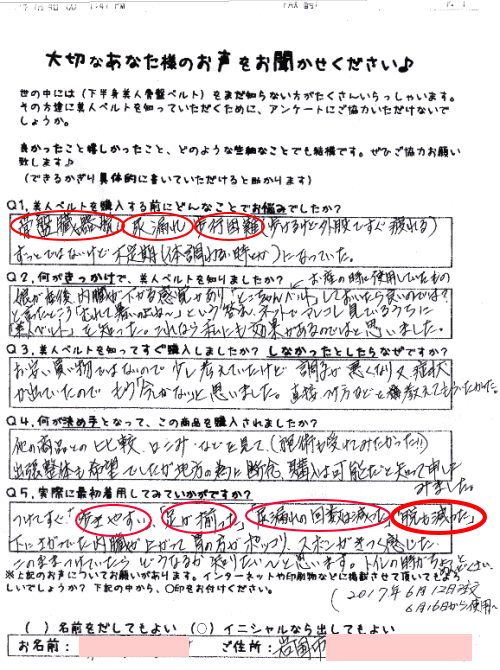 大切なあなた様のお声をお聞かせください♪
世の中には(下半身美人骨盤ベルト)をまだ知らない方がたくさんいらっしゃいます。
その方達に美人ベルトを知っていただくために、アンケートにご協力いただけないで
しょうか。
良かったこと嬉しかったこと、どのような些細なことでも結構です。ぜひご協力お願い
致します♪
(できるかぎり具体的に書いていただけると助かります)
Q1,美人ベルトを購入する前にどんなことでお悩みでしたか?
骨盤臓器脱 尿漏れ 歩行困難 (歩けるけど外股ですぐ疲れる)
ずっとではないけど不定期(体調わるい時が)になっていた。
Q2,何がきっかけで、美人ベルトを知りましたか?
お産の時に使用していたもの
娘が産後、内臓が下がる感覚があり「とこちゃんベルト」しておいたら良いのでは?
と言ったところ
ネットで 見ているうちに
美人ベルトを知った。これなら私にも効果があるのではと思いました。
Q3,美人ベルトを知ってすぐ購入しましたか? しなかったとしたらなぜですか?
お安い買い物ではないので少し考えていたけど 調子が悪くなり又症状
が出ていたのでもう「今しかない」と思いました。直接つけ方などを教えてもらいたかった。
Q4,何が決め手となって、この商品を購入されましたか?
他の商品との比較、口コミなどを見て、(施術も受けてみたかった!!)
出張整体も希望でしたが地方の為に断念 購入は可能だと知って申し
みました。
Q5,実際に最初着用してみていかがですか?
つけてすぐ「歩きやすい」「足が揃った」「尿漏れの回数は減った」「脱も減った」
下にさがってた内臓が上がって胃の方がポッコリ、ズボンがきつく感じた。
このままつけていたらどうなるか知りたいと思います。トイレの時がちょっと
めんどくさい。
※上記のお声についてお願いがあります。インターネットや印刷物などに掲載させて頂いてもよろ
しいでしょうか? 下記の中から、○印をお付けください。
(2017年6月12日注文
6月16日から使用)
( )名前をだしてもよい (○)イニシャルなら出してもよい
お名前: ご住所:岩国市